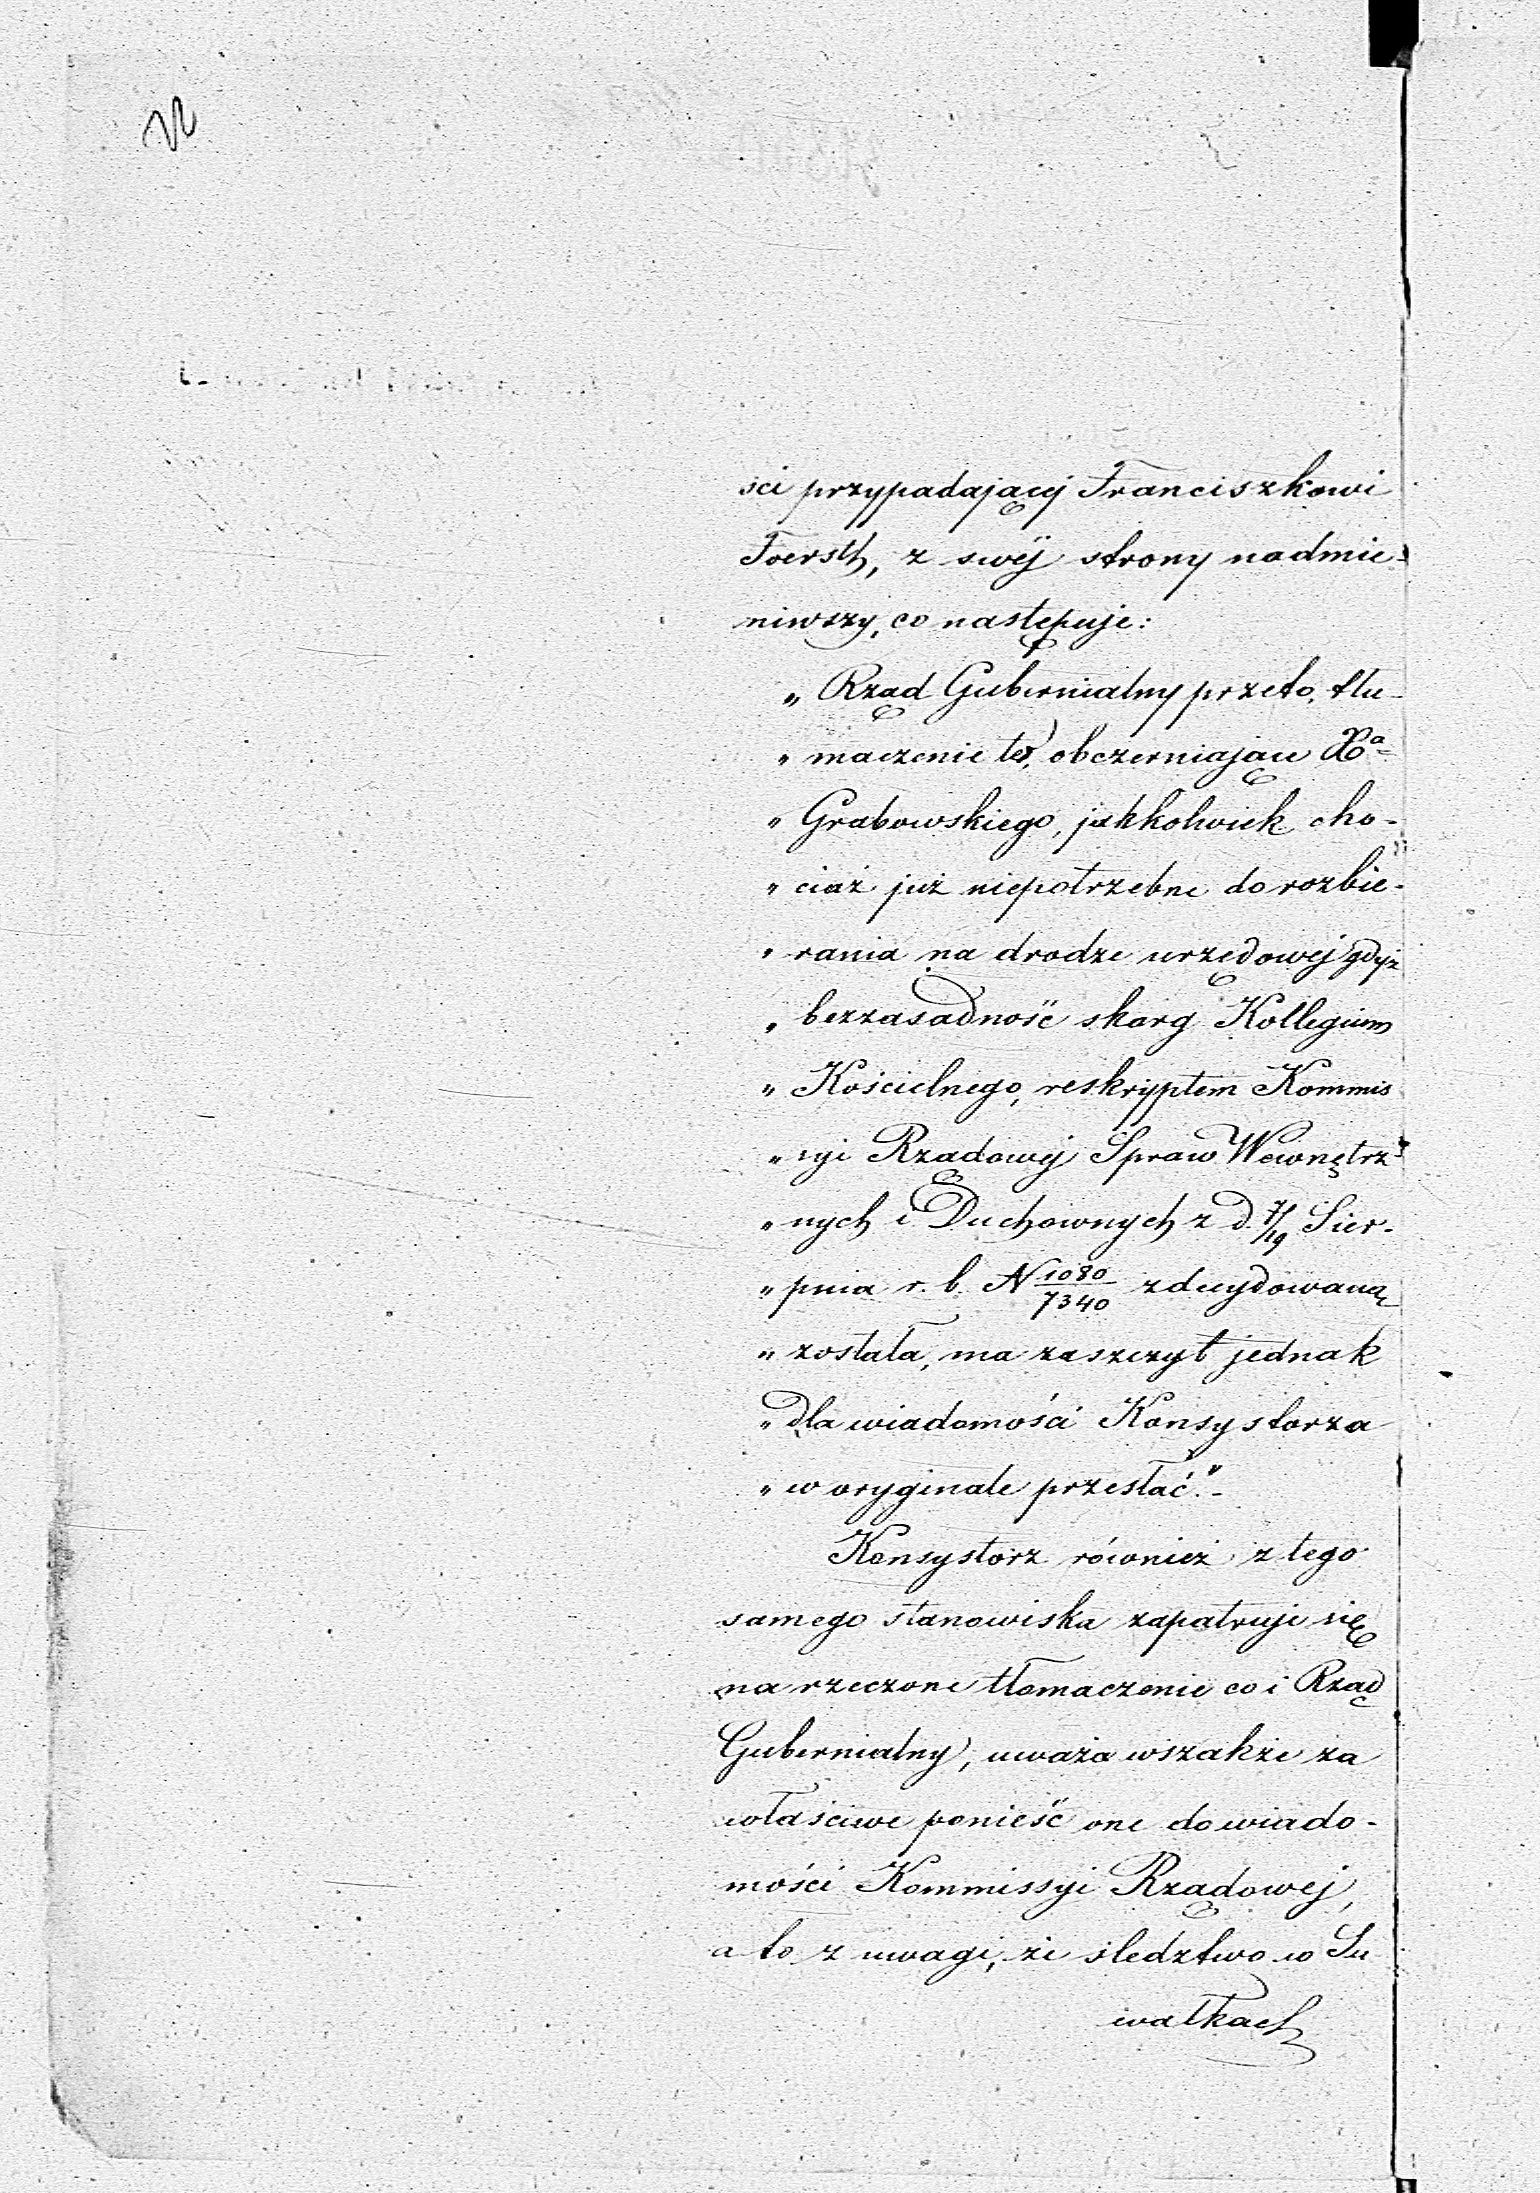 ści przypadającej Franciszkowi
Foersth, z swéj strony nadmie-
niwszy, co następuje:
„ Rząd Gubernialny przeto, tłu-
„ maczenie to, obczerniające Xa
„ Grabowskiego, jakkolwiek cho-
„ ciaż już niepotrzebne do rozbie-
„ rania na drodze urzędowej gdyż
„ bezzasadność skarg Kollegium
„ Kościelnego, reskryptem Kommis
„ syi Rządowej Spraw Wewnętrz-
„ nych i Duchownych z d. 7/19 Sier-
„ pnia r. b. N 1080/7340 zdecydowaną
„ została, ma zaszczyt jednak
„ dla wiadomości Konsystorza
„ w oryginale przesłać.”-
Konsystorz również z tego
samego stanowiska zapatruje się
na rzeczone tłomaczenie co i Rząd
Gubernialny, uważa wszakże za
właściwe ponieść one do wiado-
mości Kommissyi Rządowej,
a to z uwagi, że śledztwo w Su
wałkach